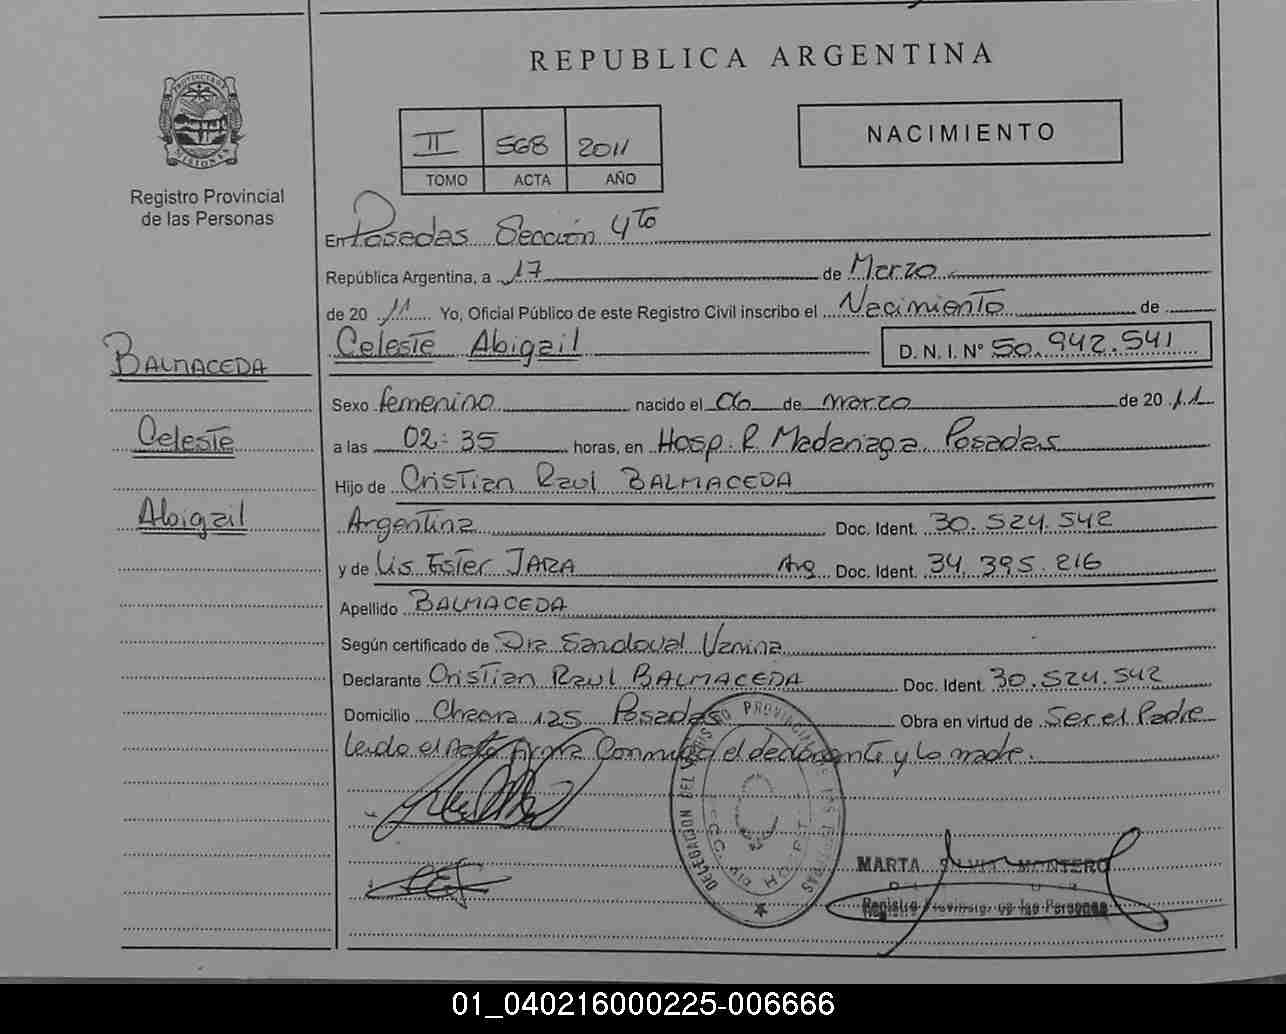 REPUBLICA ARGENTINA
PROVINCIA DE MISIONES
Registro Provincial
de las Personas
II 568 2011
TOMO ACTA AÑO
NACIMIENTO
En Posadas Sección 4to
República Argentina, a 17 de Marzo
de 20 11 Yo, Oficial Público de este Registro Civil inscribo el Nacimiento de
Celeste Abigail D. N. I. Nº 50.942.541
BALMACEDA
Celeste
Abigail
Sexo femenino nacido el 06 de marzo de 20 11
a las 02:35 horas, en Hosp. R. Madariaga Posadas
Hijo de Cristian Raul BALMACEDA
Argentina Doc. Ident. 30.524.542
y de Lis Ester JARA Arg Doc. Ident. 34.395.216
Apellido BALMACEDA
Según certificado de Dra Sandoval Vanina
Declarante Cristian Raul BALMACEDA Doc. Ident. 30.524.542
Domicilio Chacra 125 Posadas Obra en virtud de Ser el Padre
Leída el Acta firma Conmigo el declarante y la madre.
MARTA SILVIA MONTERO
Registro Provincial de las Personas
01_040216000225-006666